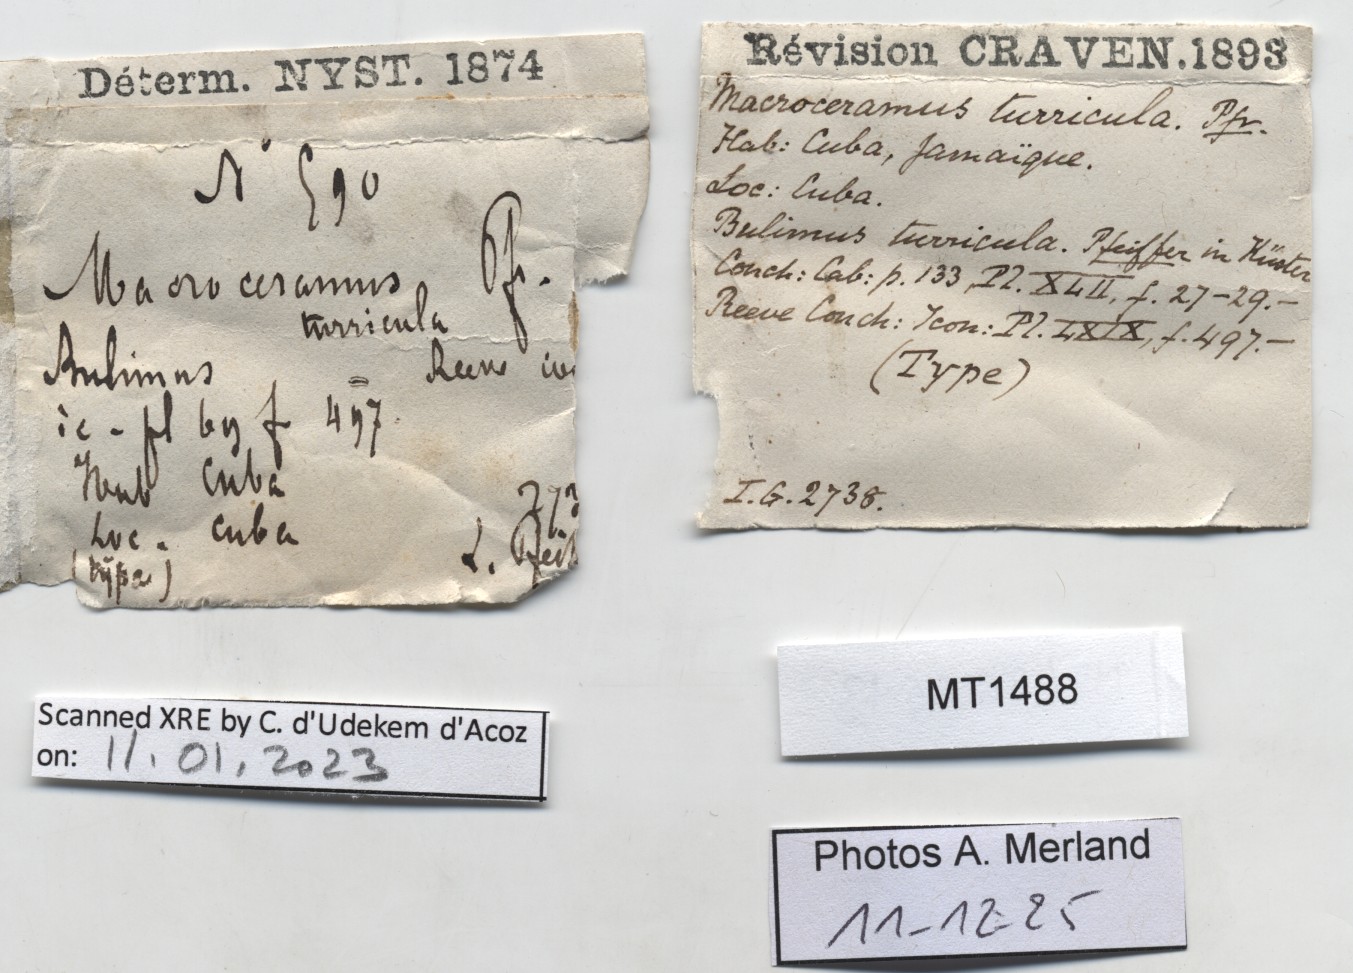 Déterm. NYST. 1874
N° 590
Macroceramus Pfr.
turricula
Bulimus Reeve
ic - pl f 497
Hab Cuba
Loc. Cuba
(type) L.
Révision CRAVEN.1893
Macroceramus turricula. Pfr.
Hab: Cuba, Jamaïque.
Loc: Cuba.
Bulimus turricula. Pfeiffer in Küster
Conch: Cab: p. 133, Pl. XLII, f. 27-29.-
Reeve Conch: Icon: Pl. LXIX, f. 497.-
(Type)
I.G. 2738.
Scanned XRE by C. d'Udekem d'Acoz
on: 11.01.2023
MT1488
Photos A. Merland
11-12-25